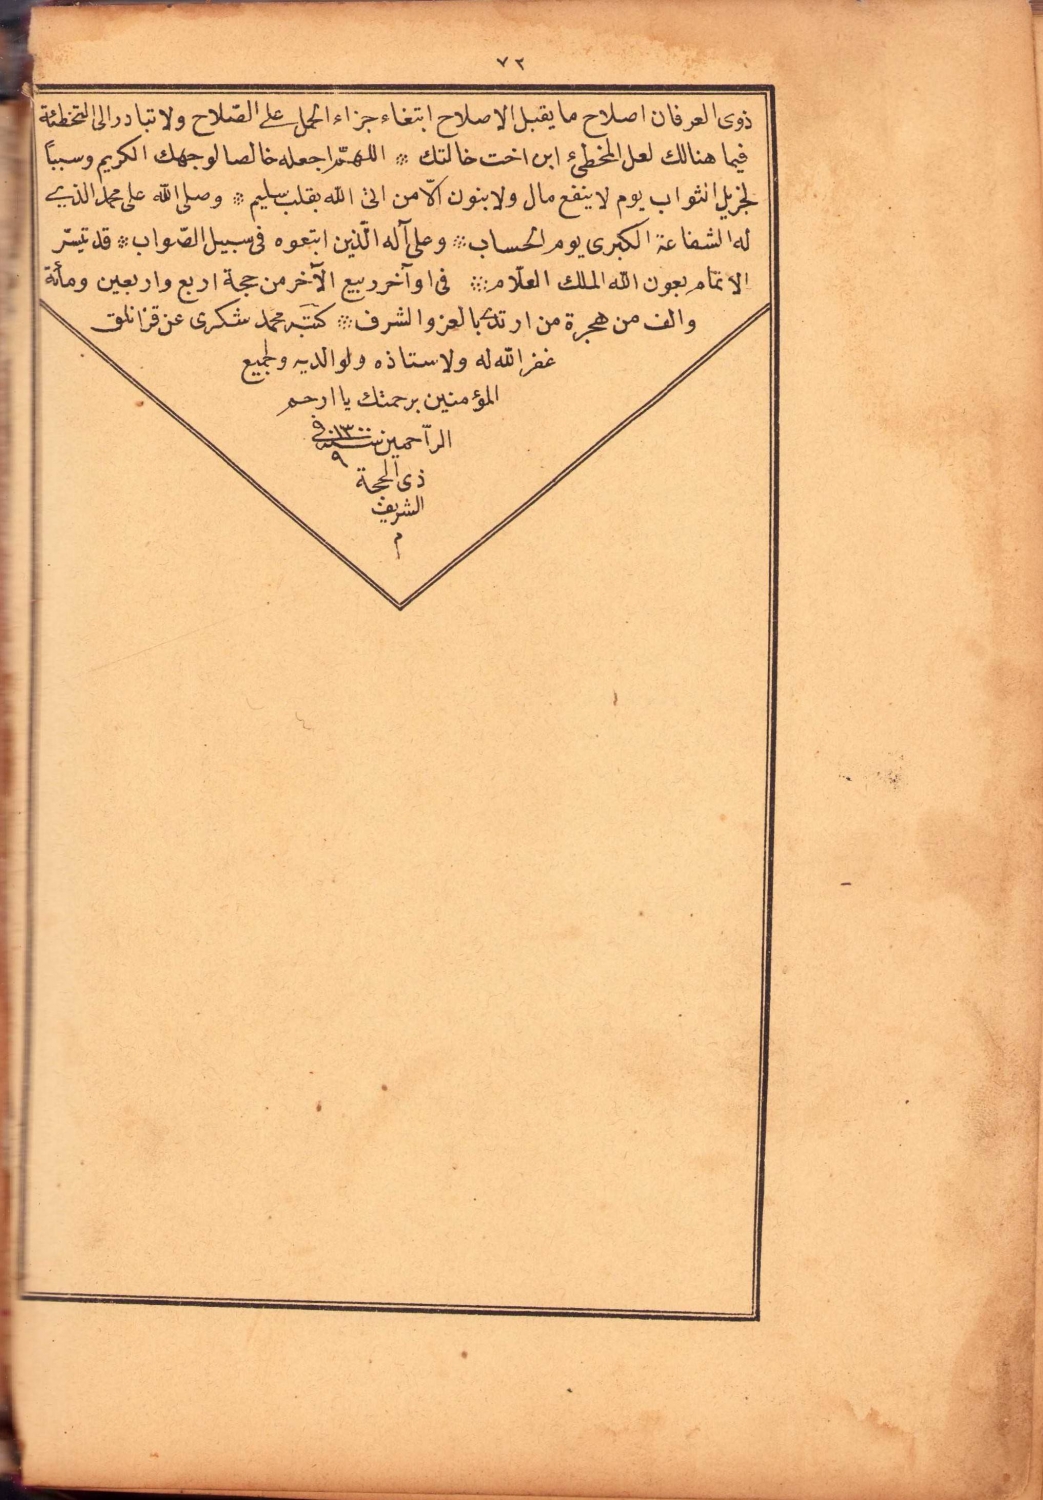 ٧٢
ذوى العرفان اصلاح ما يقبل الاصلاح ابتغاء جزاء الحمل على الصّلاح ولا تبادر الى التخطئة
فيما هنالك لعل المخطئ ابن اخت خالتك ❊ اللهمّ اجعله خالصا لوجهك الكريم وسبباً
لجزيل الثواب يوم لا ينفع مال ولا بنون الّا من اتى الله بقلب سليم ❊ وصلى الله على محمد الذى
له الشفاعة الكبرى يوم الحساب ❊ وعلى آله الّذين ابتعوه فى سبيل الصّواب ❊ قد تيسّر
الاتمام بعون الله الملك العلّام ❊ فى اوآخر ربيع الآخر من حجة اربع واربعين ومأئة
والف من هجرة من ارتدى بالعز والشرف ❊ كتبه محمد شكرى عن قزانلق
غفر الله له ولاستاذه ولوالديه ولجميع
المؤمنين برحمتك يا ارحم
الرّاحمين سنة ١٣٠٠ فى
٩
ذى الحجة
الشريف
م